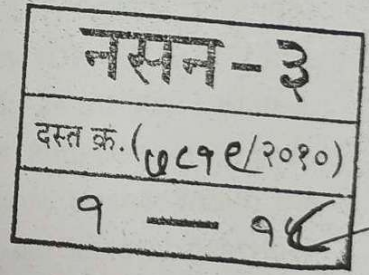 नसन-३
दस्त क्र. (७८१९/२०१०)
१ — १५